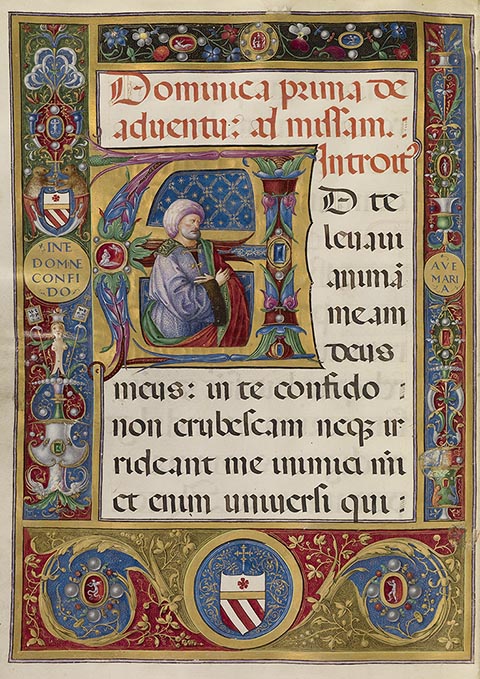 Dominica prima de
aduentu: ad missam.
Introit⁹
AD te
leuaui
animā
meam
deus
meus: in te confido :
non erubescam neqꝫ ir
rideant me inimici m̄i
et enim uniuersi qui :
INE
DOMNE
CONFI
DO
AVE
MARI
A